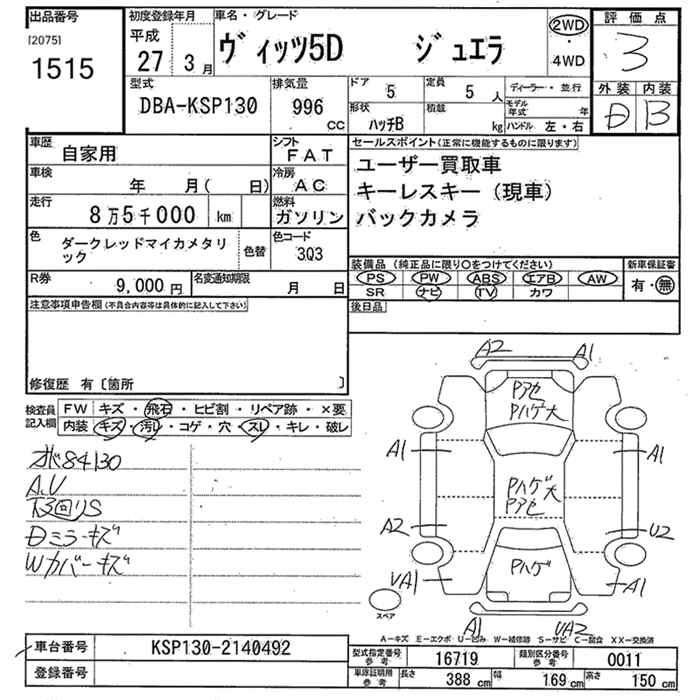 出品番号
[2075]
1515
初度登録年月
平成
27 3月
車名・グレード
ヴィッツ5D ジュエラ
2WD
・
4WD
評価点
3
外装 内装
D B
型式
DBA-KSP130
排気量
996
CC
ドア
5
定員
5 人
ディーラー・並行
形状
ハッチB
積載
kg
モデル年式 年
ハンドル 左・右
車歴
自家用
シフト
FAT
車検
年 月( 日)
冷房
AC
走行
8万5千000 km
燃料
ガソリン
色
ダークレッドマイカメタリ
ック
色替
色コード
3Q3
R券
9,000 円
名変通知期限
月 日
セールスポイント(正常に機能するものに限ります)
ユーザー買取車
キーレスキー(現車)
バックカメラ
装備品 (純正品に限り〇をつけてください)
新車保証書
PS PW ABS エアB AW
SR ナビ TV カワ
有・無
後日品
注意事項申告欄(不具合内容等は具体的に記入して下さい)
修復歴 有〔箇所 〕
検査員
記入欄
FW キズ・飛石・ヒビ割・リペア跡・×要
内装 キズ・汚レ・コゲ・穴・スレ・キレ・破レ
オド84130
A.U
下回りS
Dミラーキズ
Wカバーキズ
A2 A1
Pアセ
Pハゲ大
A1 A1
Pハゲ大
Pアセ
A2 U2
Pハゲ
UA1 A1
スペア
A1 UA2
A-キズ E-エクボ U-凹み W-補修跡 S-サビ C-腐食 XX-交換済
車台番号
KSP130-2140492
登録番号
型式指定番号
参考
16719
類別区分番号
参考
0011
車庫証明用
参考
長さ 388 cm 幅 169 cm 高さ 150 cm